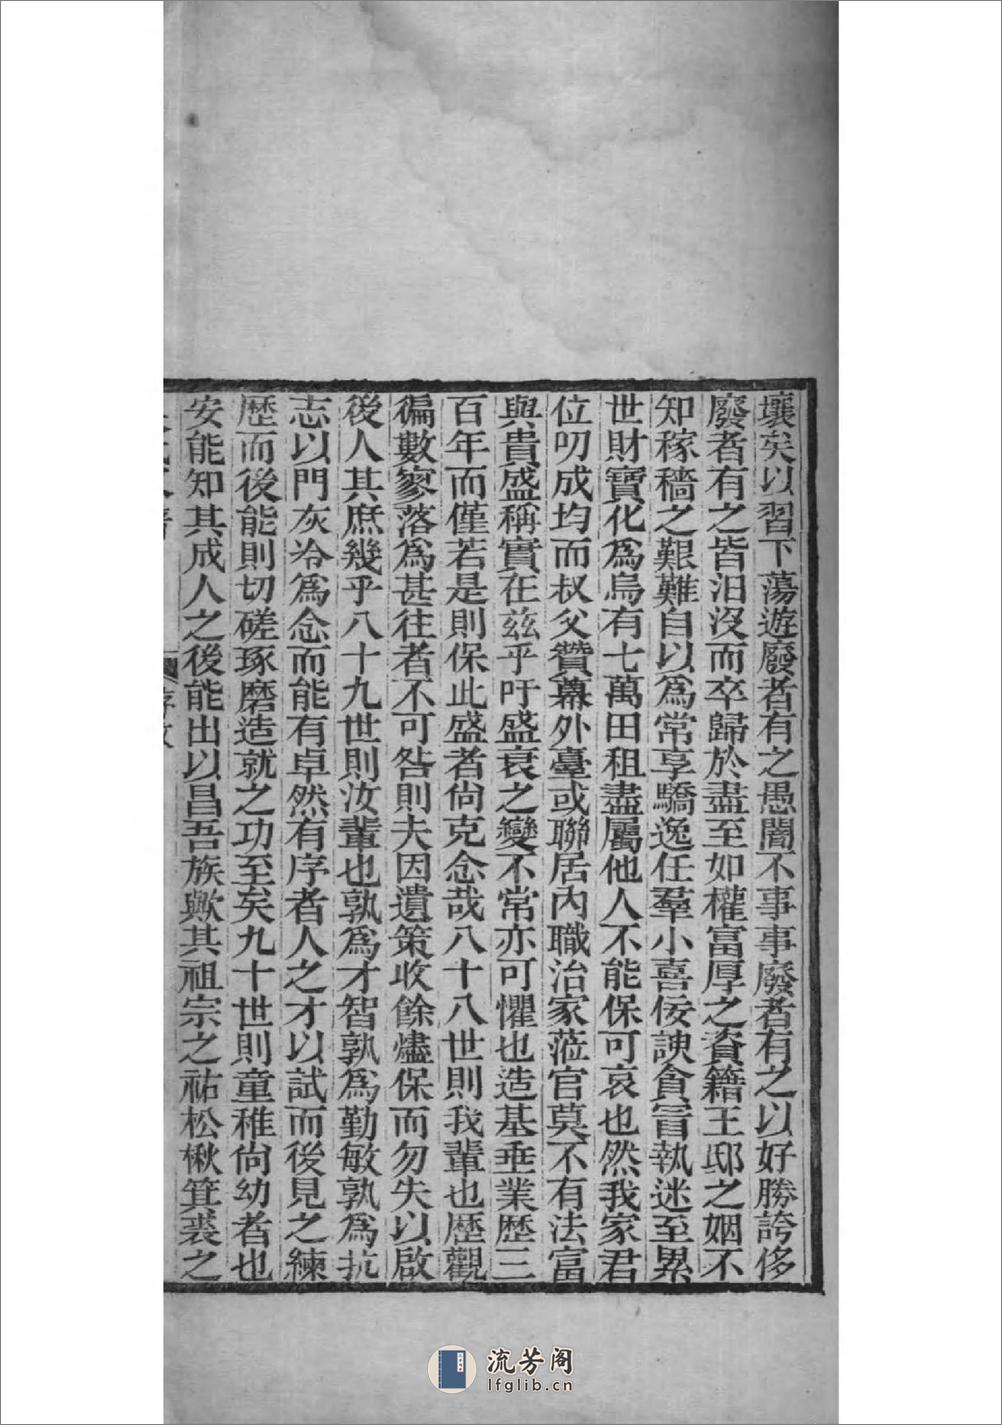 壤矣以習下蕩遊廢者有之愚闇不事事廢者有之以好勝誇侈
廢者有之皆汨沒而卒歸於盡至如權富厚之資籍王邸之姻不
知稼穡之艱難自以爲常享驕逸任羣小喜佞諛貪冒執迷至累
世財寶化爲烏有七萬田租盡屬他人不能保可哀也然我家君
位叨成均而叔父贊幕外臺或聯居內職治家蒞官莫不有法富
與貴盛稱實在兹乎吁盛衰之變不常亦可懼也造基垂業歷三
百年而僅若是則保此盛者尙克念哉八十八世則我輩也歷觀
徧數寥落爲甚往者不可咎則夫因遺策收餘燼保而勿失以啟
後人其庶幾乎八十九世則汝輩也孰爲才智孰爲勤敏孰爲抗
志以門灰冷爲念而能有卓然有序者人之才以試而後見之練
歷而後能則切磋琢磨造就之功至矣九十世則童稚尙幼者也
安能知其成人之後能出以昌吾族歟其祖宗之祐松楸箕裘之
流芳阁
lfglib.cn